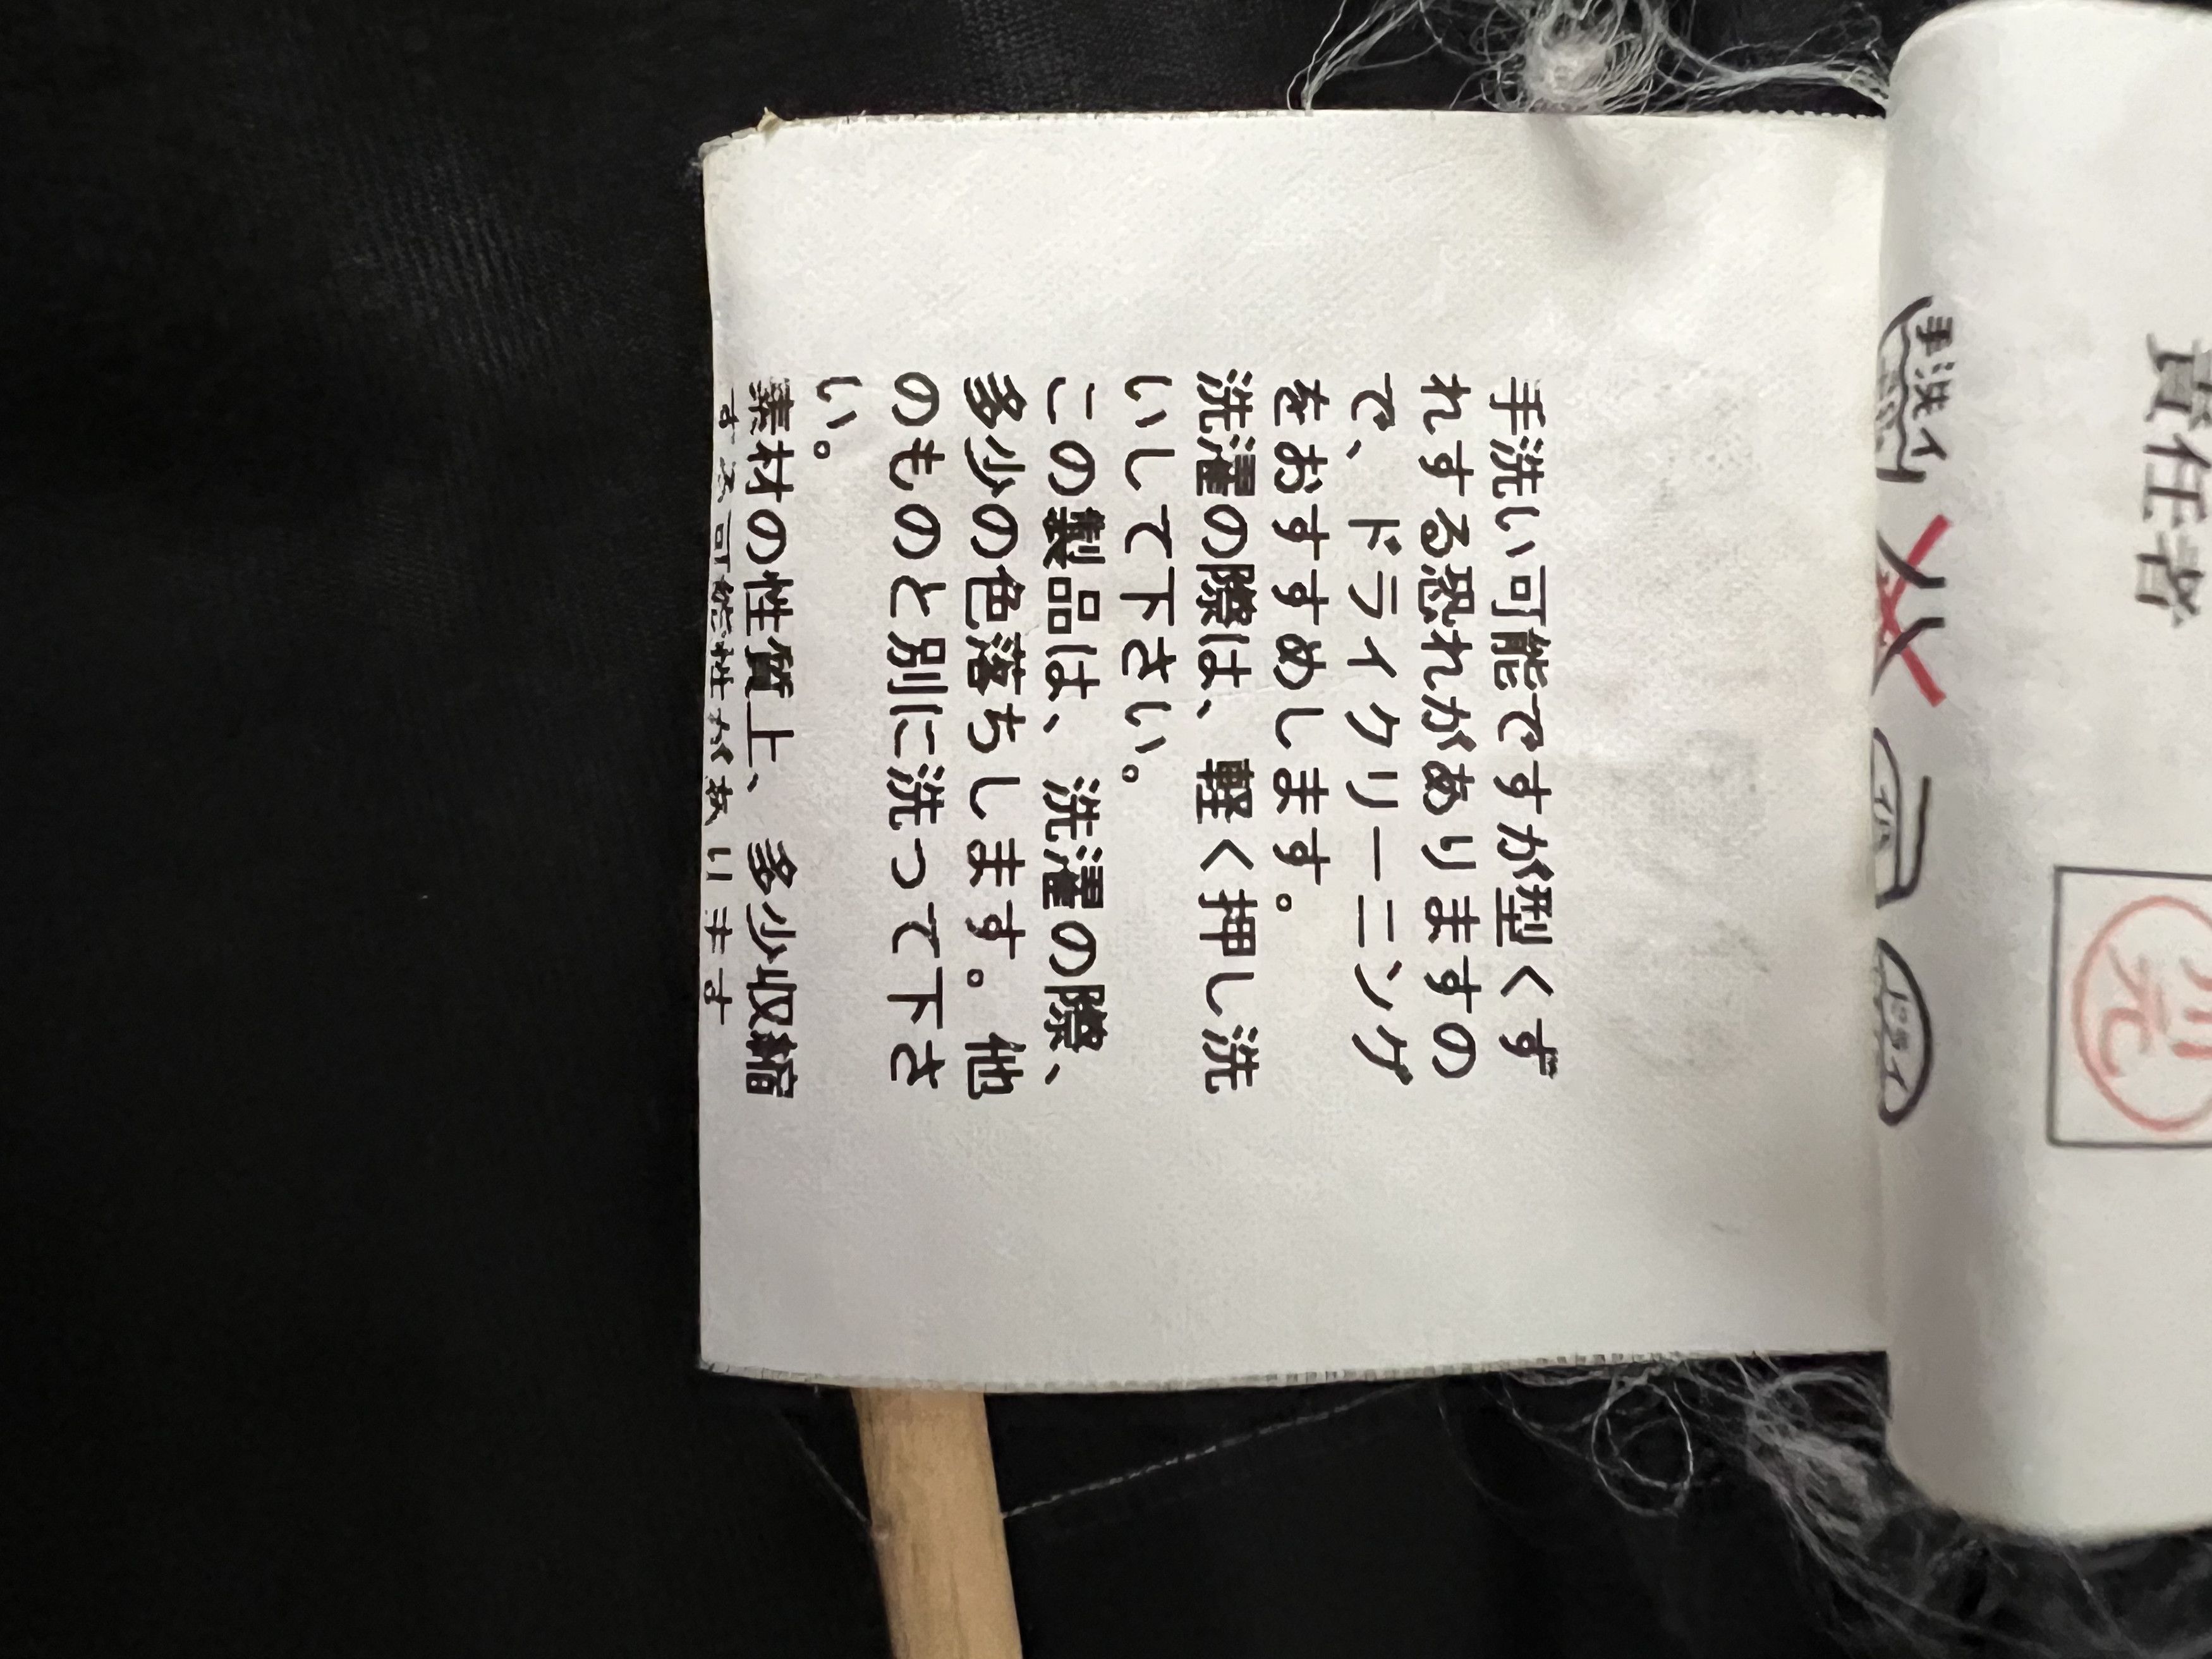 手洗い可能ですが型くず
れする恐れがありますの
で、ドライクリーニング
をおすすめします。
洗濯の際は、軽く押し洗
いして下さい。
この製品は、洗濯の際、
多少の色落ちします。他
のものと別に洗って下さ
い。
素材の性質上、多少収縮
する可能性が在ります
責任者
手洗イ
ドライ